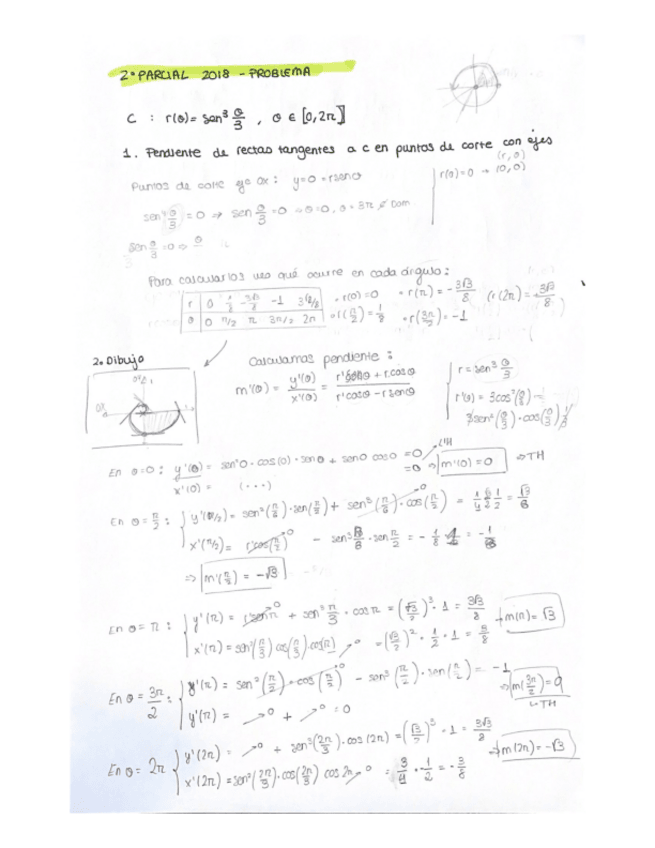 2º PARCIAL 2018 - PROBLEMA
C : r(θ) = sen³ θ/3 , θ ∈ [0, 2π]
1. Pendiente de rectas tangentes a c en puntos de corte con ejes
(r, θ)
Puntos de corte eje Ox : y=0 = r senθ
r(θ)=0 → (0,0)
sen³ θ/3 = 0 ⇒ sen θ/3 = 0 → θ=0, θ = 3π ∉ Dom
Sen θ/3 = 0 ⇒ θ
Para calcularlos veo qué ocurre en cada ángulo :
r 0 1/8 3√3/8 -1 3√3/8
θ 0 π/2 π 3π/2 2π
• r(0) = 0 • r(π) = - 3√3/8 (r(2π) = 3√3/8
• r(π/2) = 1/8 • r(3π/2) = -1
2. Dibujo
Calculamos pendiente :
m'(θ) = y'(θ)/x'(θ) = r' senθ + r cosθ / r' cosθ - r senθ
r = sen³ θ/3
r'(θ) = 3cos²(θ/3)
3sen²(θ/3) · cos(θ/3) 1/3
En θ=0 : y'(θ) = sen²0 · cos(0) · sen0 + sen0 cos0 = 0 ⇒ m'(0) = 0 ⇒ TH
x'(0) = (...) = 0
En θ = π/2 : y'(π/2) = sen²(π/6) · sen(π/2) + sen³(π/6) · cos(π/2) = 1/4 · √3/2 · 1/2 = √3/8
x'(π/2) = r' cos(π/2) - sen³ π/6 · sen π/2 = - 1/8 · 1 = -1/8
⇒ m'(π/2) = -√3
En θ = π : y'(π) = r' senπ + sen³ π/3 · cos π = (√3/2)³ · 1 = 3√3/8 → m(π) = √3
x'(π) = sen²(π/3) cos(π/3) · cos(π) = (√3/2)² · 1/2 · 1 = 3/8
En θ = 3π/2 : y'(π) = sen²(π/2) · cos(π/2) - sen³(π/2) · sen(π/2) = -1 ⇒ m(3π/2) = 0
y'(π) = → 0 + → 0 = 0
↳ TH
En θ = 2π y'(2π) = → 0 + sen³(2π/3) · cos(2π) = (√3/2)³ · 1 = 3√3/8 → m(2π) = -√3
x'(2π) = sen²(2π/3) · cos(2π/3) cos 2π → 0 = 3/4 · -1/2 = -3/8